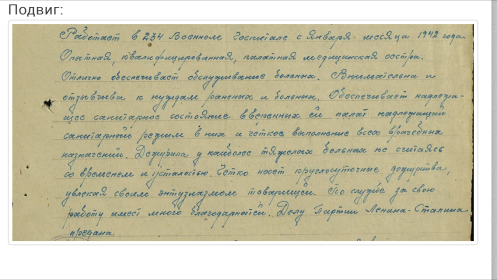 Подвиг:
Работает в 254 Военном Госпитале с января месяца 1942 года.
Опытная, квалифицированная, палатная медицинская сестра.
Отлично обеспечивает обслуживание больных. Внимательна и
отзывчива к нуждам раненых и больных. Обеспечивает надлежа-
щее санитарное состояние вверенных ей палат надлежащий
санитарный режим в них и чёткое выполнение всех врачебных
назначений. Дежурила у наиболее тяжелых больных не считаясь
со временем и усталостью. Четко несет круглосуточные дежурства,
увлекая своим энтузиазмом товарищей. По службе за свою
работу имеет много благодарностей. Делу Партии Ленина-Сталина
предана